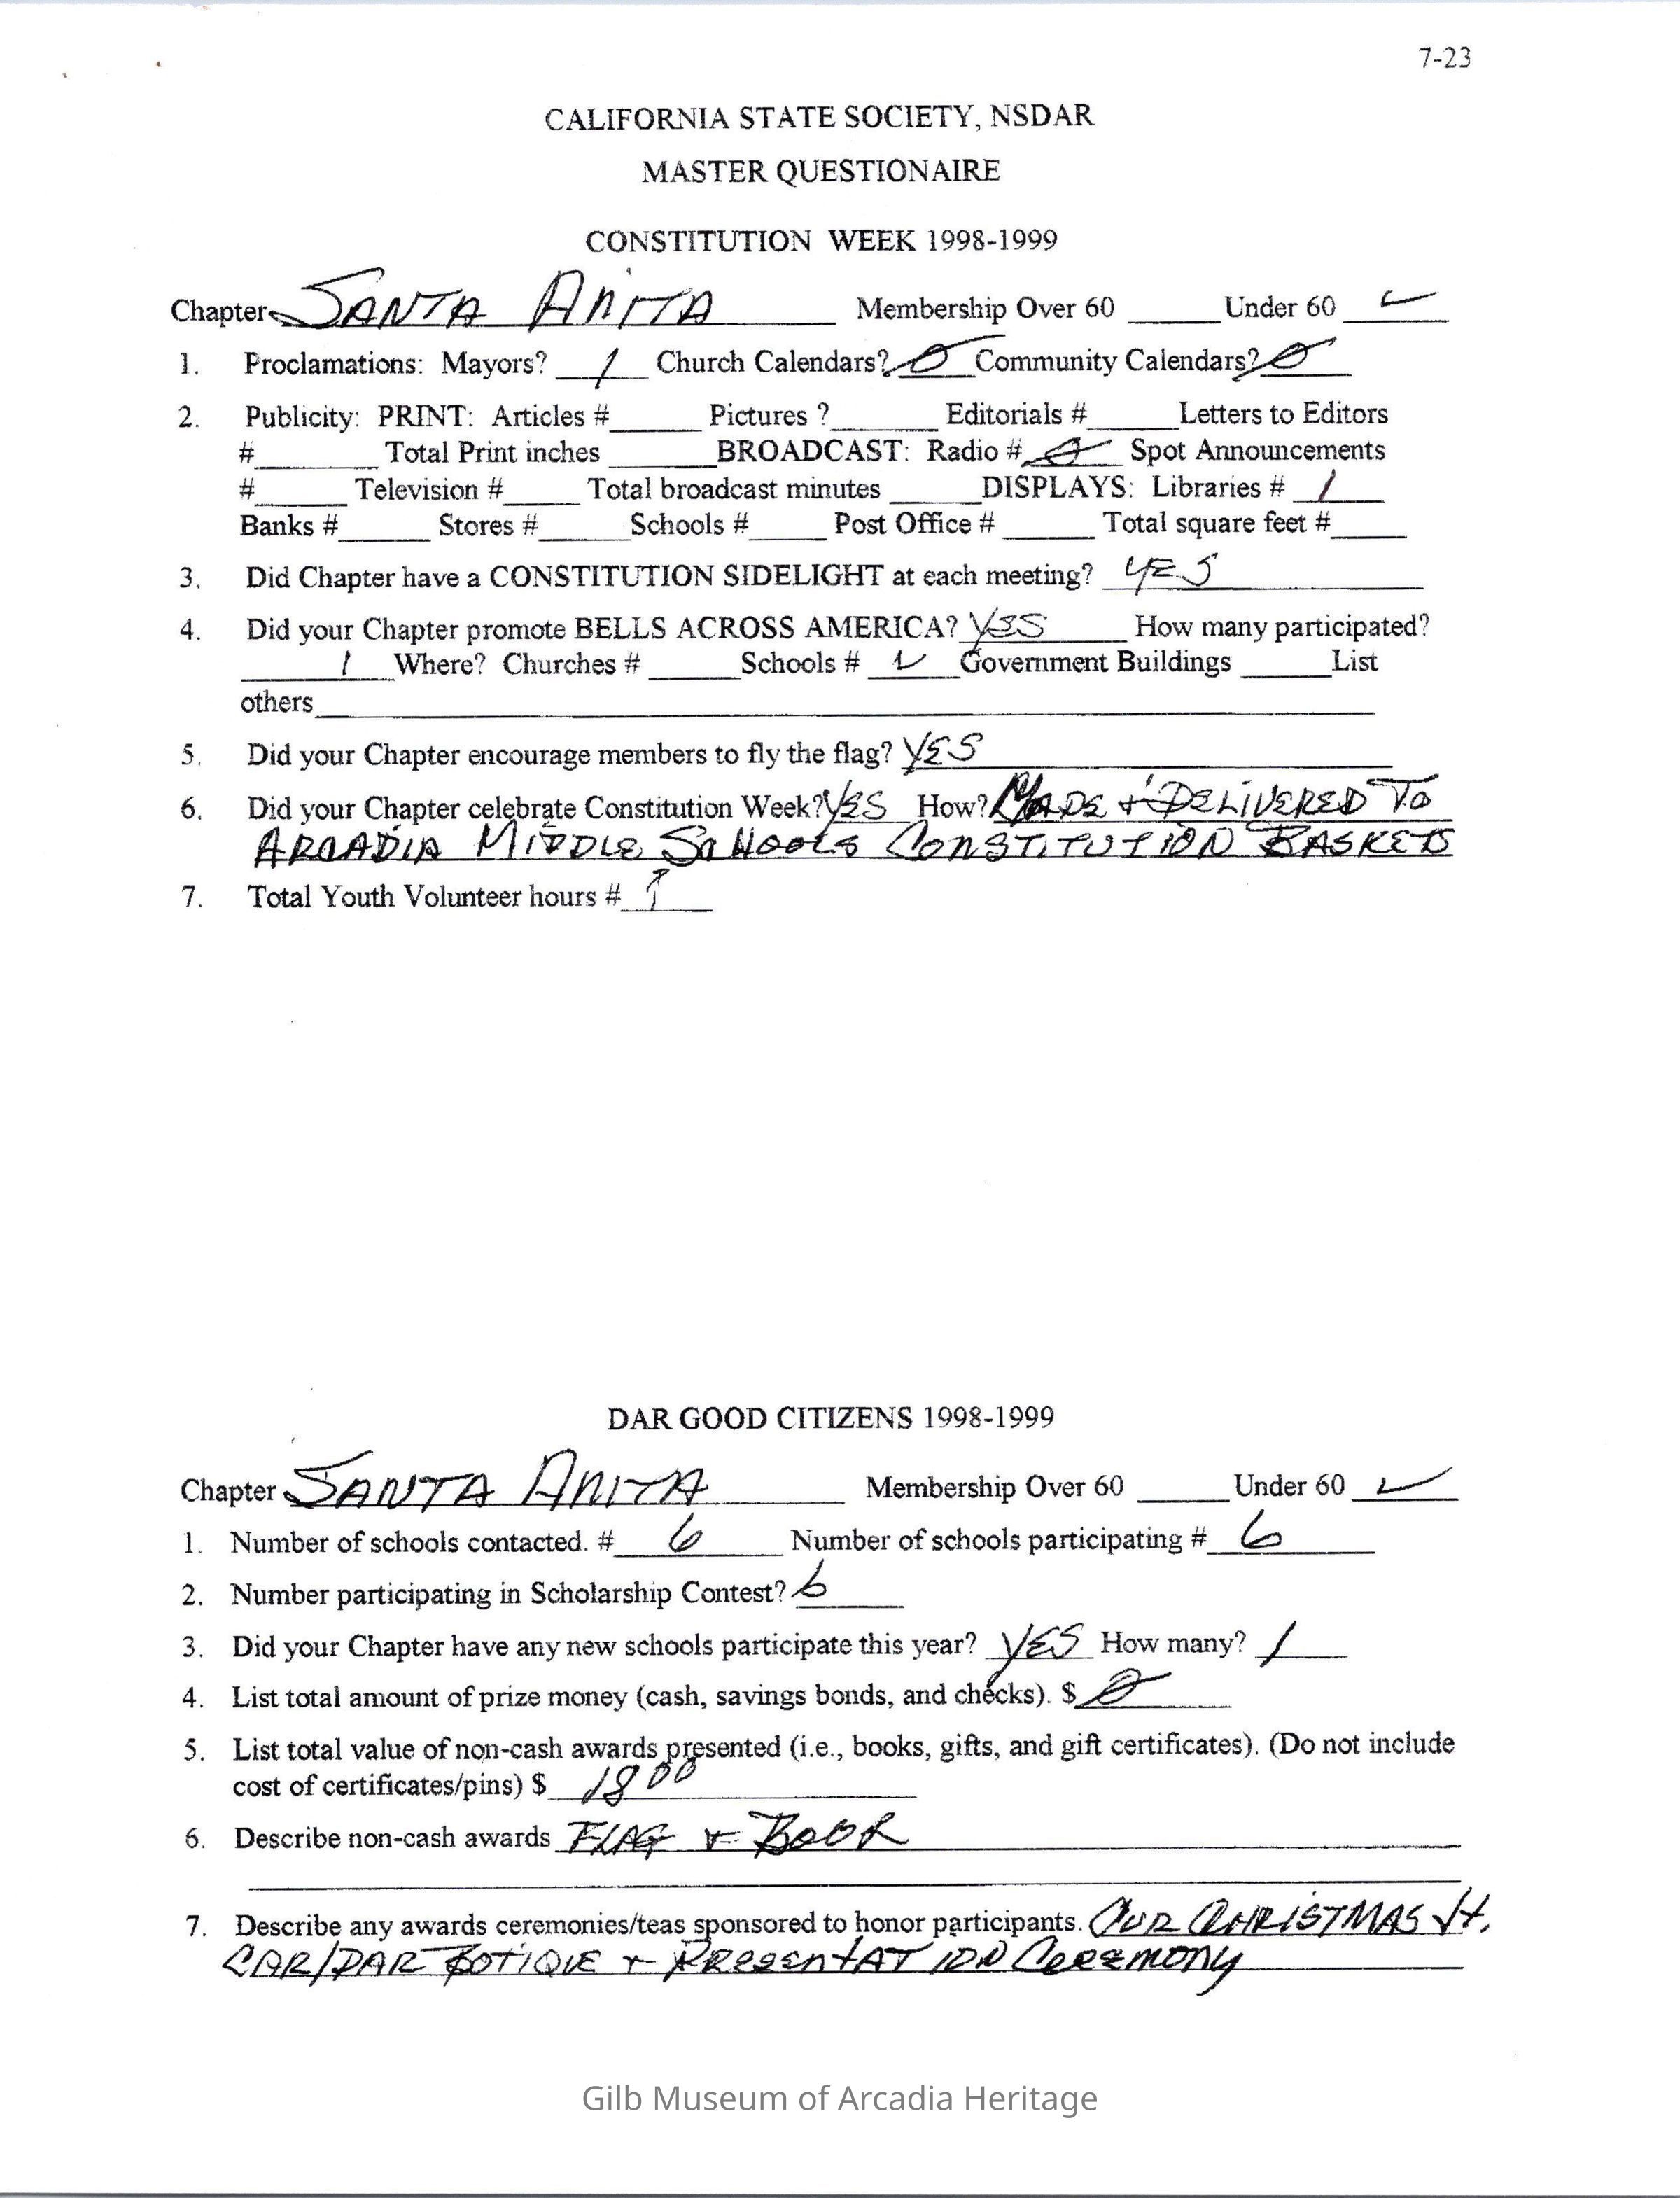 7-23
CALIFORNIA STATE SOCIETY, NSDAR
MASTER QUESTIONAIRE
CONSTITUTION WEEK 1998-1999
Chapter SANTA ANITA Membership Over 60 ______ Under 60 ✓
1. Proclamations: Mayors? 1 Church Calendars? 0 Community Calendars? 0
2. Publicity: PRINT: Articles #______ Pictures ?_______ Editorials #______Letters to Editors
#________ Total Print inches _______BROADCAST: Radio # 0 Spot Announcements
#______ Television #_____ Total broadcast minutes ______DISPLAYS: Libraries # 1
Banks #______ Stores #______Schools #_____ Post Office # ______ Total square feet #_____
3. Did Chapter have a CONSTITUTION SIDELIGHT at each meeting? YES
4. Did your Chapter promote BELLS ACROSS AMERICA? YES How many participated?
1 Where? Churches # ______Schools # ✓ Government Buildings ______List
others
5. Did your Chapter encourage members to fly the flag? YES
6. Did your Chapter celebrate Constitution Week? YES How? MADE + DELIVERED TO
ARCADIA MIDDLE SCHOOLS CONSTITUTION BASKETS
7. Total Youth Volunteer hours #
DAR GOOD CITIZENS 1998-1999
Chapter SANTA ANITA Membership Over 60 ______ Under 60 ✓
1. Number of schools contacted. # 6 Number of schools participating # 6
2. Number participating in Scholarship Contest? 6
3. Did your Chapter have any new schools participate this year? YES How many? 1
4. List total amount of prize money (cash, savings bonds, and checks). $ 0
5. List total value of non-cash awards presented (i.e., books, gifts, and gift certificates). (Do not include
cost of certificates/pins) $ 18 00
6. Describe non-cash awards FLAG + BOOK
7. Describe any awards ceremonies/teas sponsored to honor participants. OUR CHRISTMAS
CAR/DAR BOTIQUE + PRESENTATION CEREMONY
Gilb Museum of Arcadia Heritage